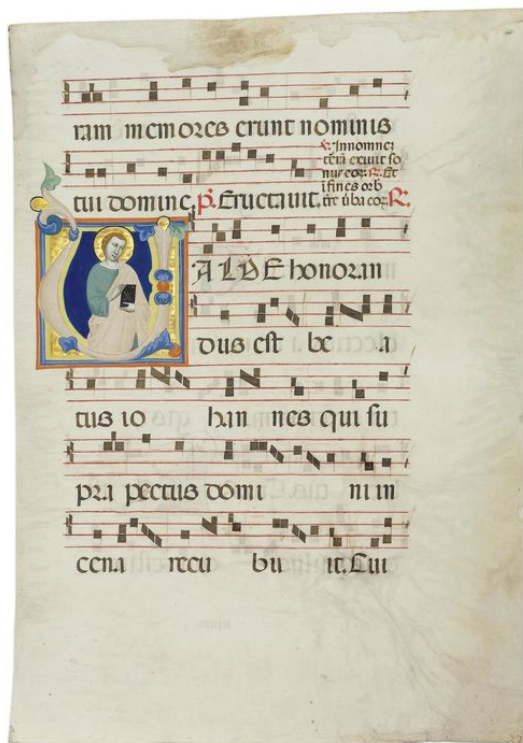 ram memores erunt nominis
tui domine. p̄. Eructauit.
℣. In omnem
terrā exiuit so
nus eoꝝ. ℟. Et
ī fines orb
tr̄e ūba eoꝝ ℟.
VALDE honoran
dus est be a
tus io han nes qui su
pra pectus domi ni in
cena recu bu it. Cui